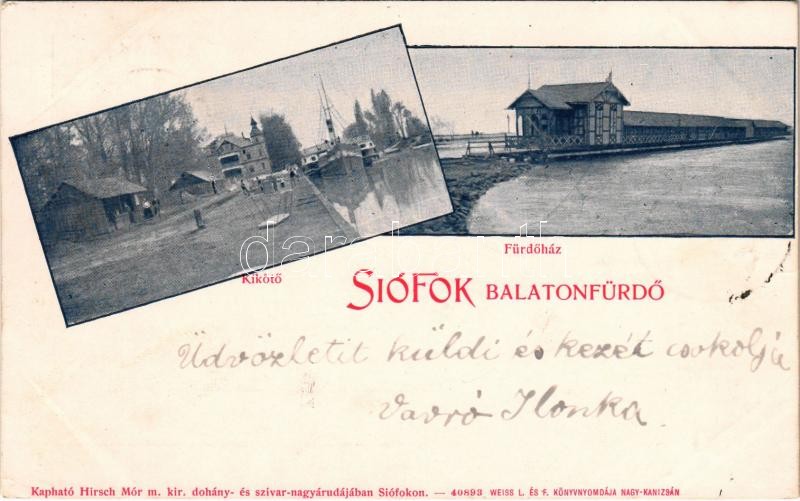 Fürdőház
Kikötő
SIÓFOK BALATONFÜRDŐ
Üdvözletit küldi és kezét csokolja
Vavró Ilonka.
Kapható Hirsch Mór m. kir. dohány- és szivar-nagyárudájában Siófokon. — 40893 WEISS L. ÉS F. KÖNYVNYOMDÁJA NAGY-KANIZSÁN